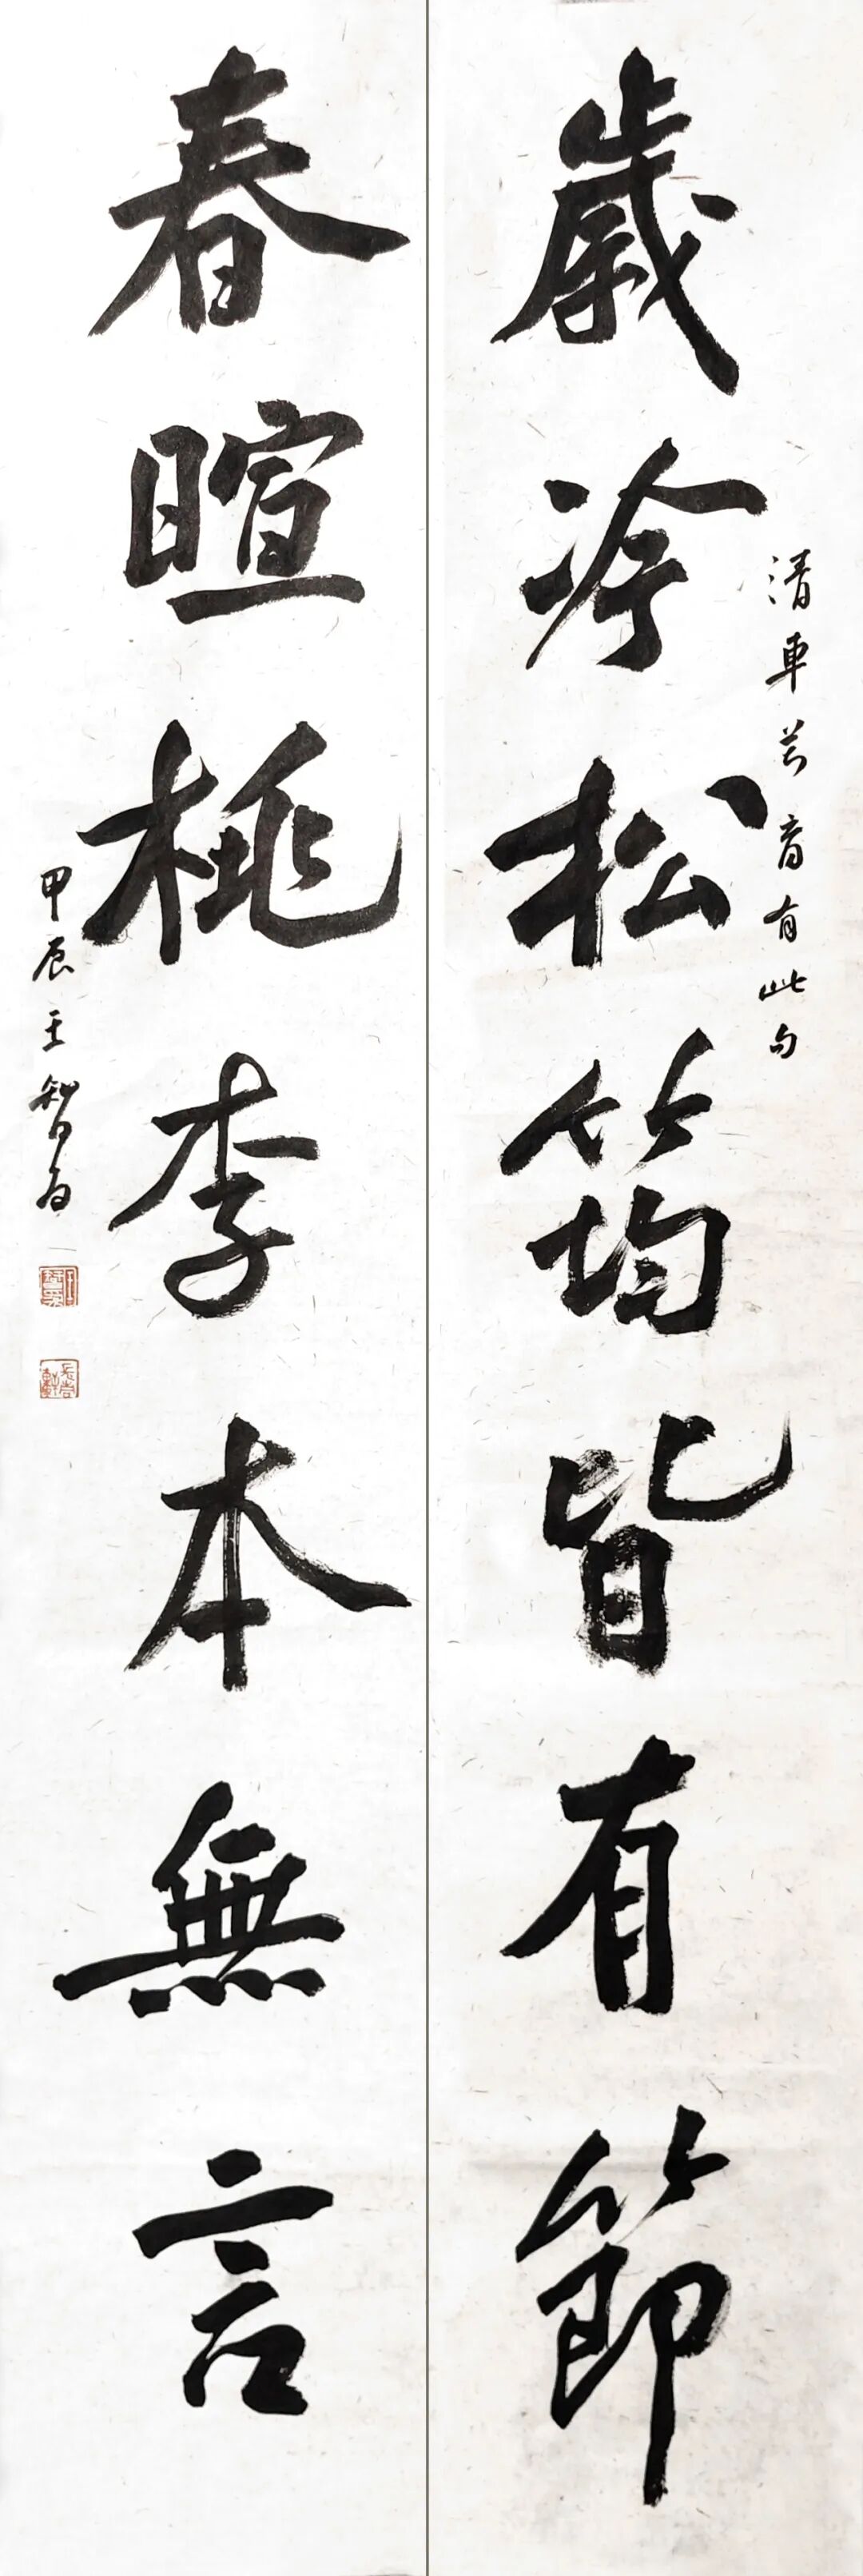 歲冷松筠皆有節
清車萬育有此句
春暄桃李本無言
甲辰王智百